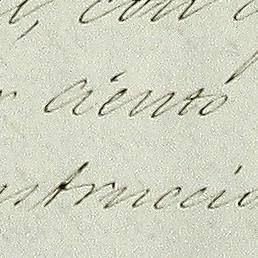 con
ciento
nstruccio